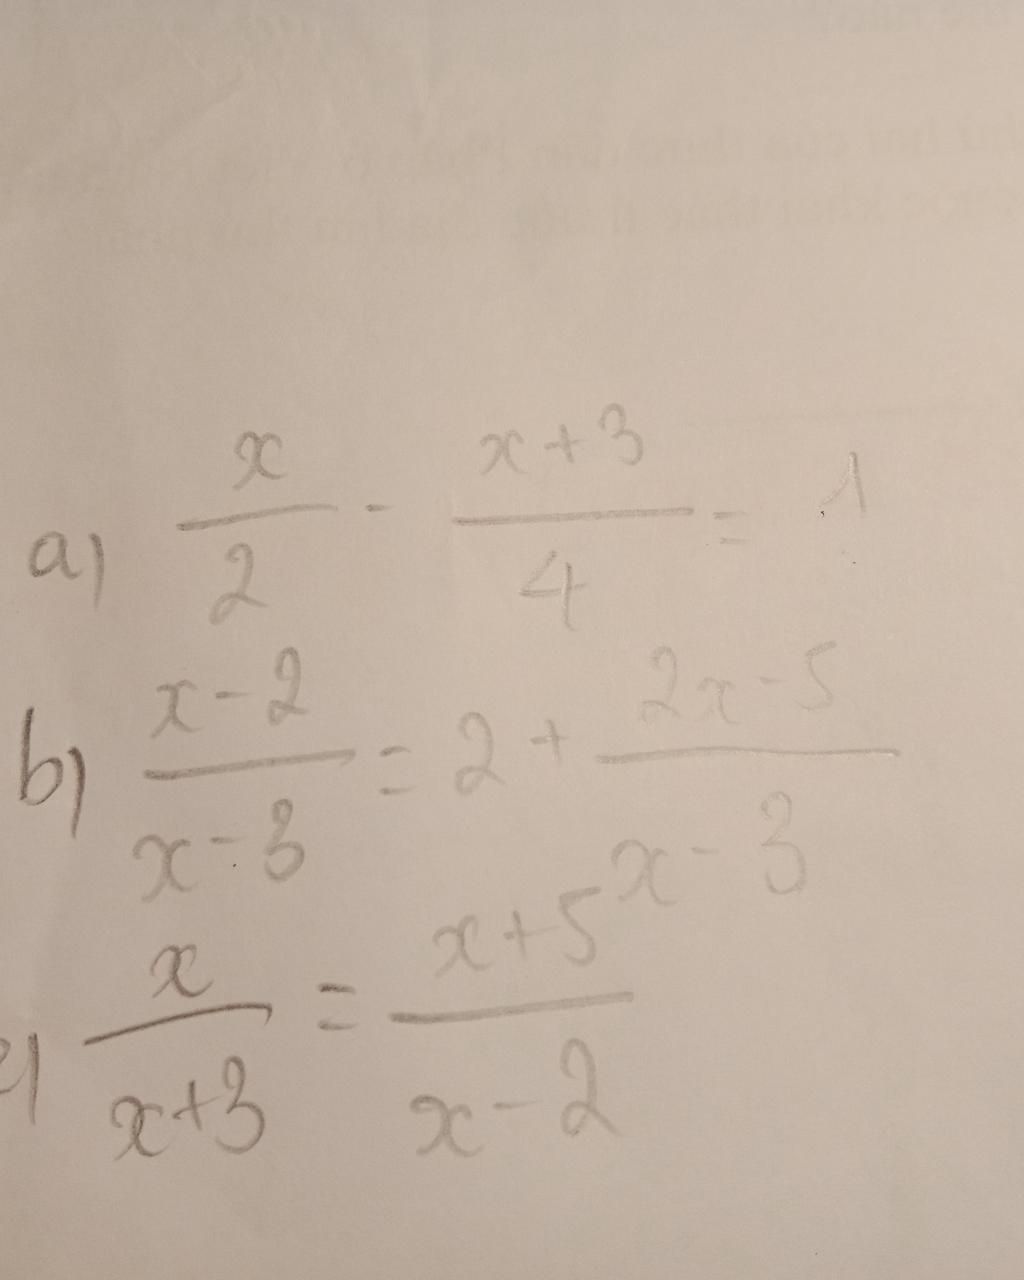 a) x/2 - (x+3)/4 = 1
b) (x-2)/(x-3) = 2 + (2x-5)/(x-3)
c) x/(x+3) = (x+5)/(x-2)